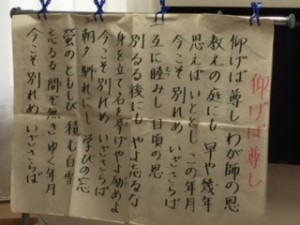 仰げば尊し
仰げば尊し わが師の恩
教えの庭にも 早や幾年
思えばいととし この年月
今こそ別れめ いざさらば
互に睦みし 日頃の恩
別るる後にも やよ忘るな
身を立て名を挙げ やよ励めよ
今こそ別れめ いざさらば
朝夕馴れにし 学びの窓
蛍のともしび 積む白雪
忘るる間ぞなき ゆく年月
今こそ別れめ いざさらば